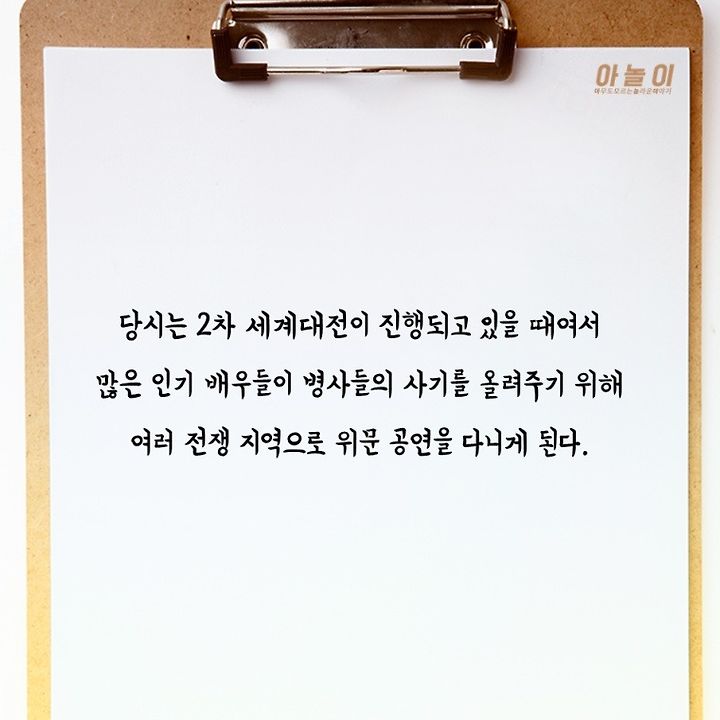 아놀이
아무도모르는놀라운이야기
당시는 2차 세계대전이 진행되고 있을 때여서
많은 인기 배우들이 병사들의 사기를 올려주기 위해
여러 전쟁 지역으로 위문 공연을 다니게 된다.